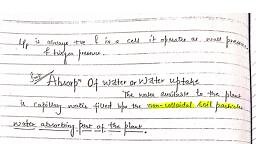 Ψp is always +ve & in a cell it operates as wall pressure
& turgor pressure.
Absorpⁿ Of water or Water uptake
The water available to the plant
is capillary water filled b/w the non-colloidal soil particles
water absorbing part of the plant.